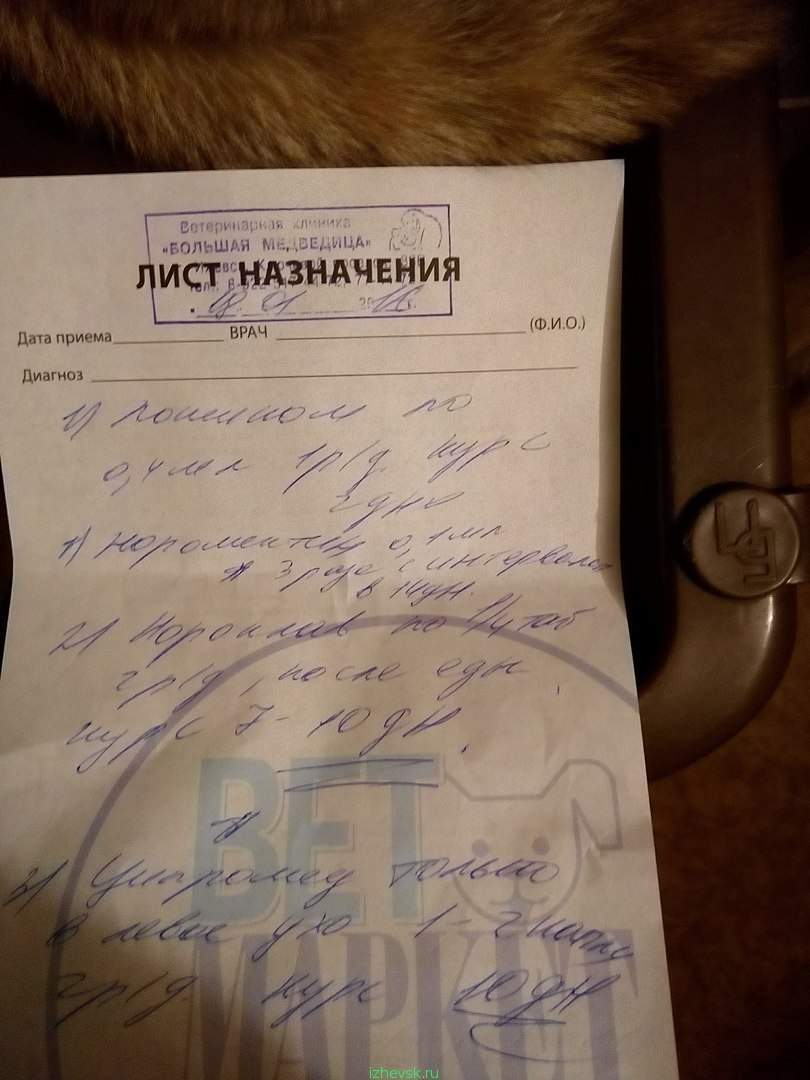 Ветеринарная клиника
«БОЛЬШАЯ МЕДВЕДИЦА»
ЛИСТ НАЗНАЧЕНИЯ
Дата приема ВРАЧ (Ф.И.О.)
Диагноз
1) по
0,4 мл 1 р/д. курс
2 дня
1) 0,1 мл
3 раза с интервалом
в 14 дн.
2) Нороклав по 1/4 таб
2 р/д, после еды,
курс 7-10 дн.
3) Ципромед только
в левое ухо 1-2 капли
2 р/д. курс 10 дн
ВЕТ
МАРКЕТ
izhevsk.ru